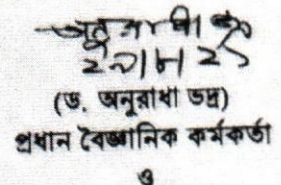 (ড. অনুরাধা ভদ্র)
প্রধান বৈজ্ঞানিক কর্মকর্তা
ও